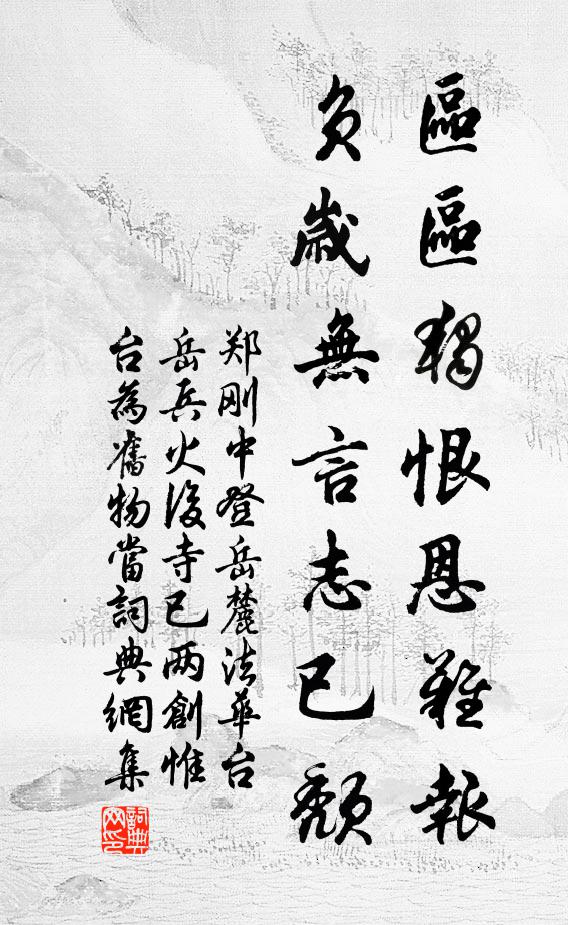 區區獨恨恩難報
負歲無言志已頹
郑刚中登岳麓法華台
岳兵火後寺已两創惟
台為舊物當詞典網集
詞典
网印